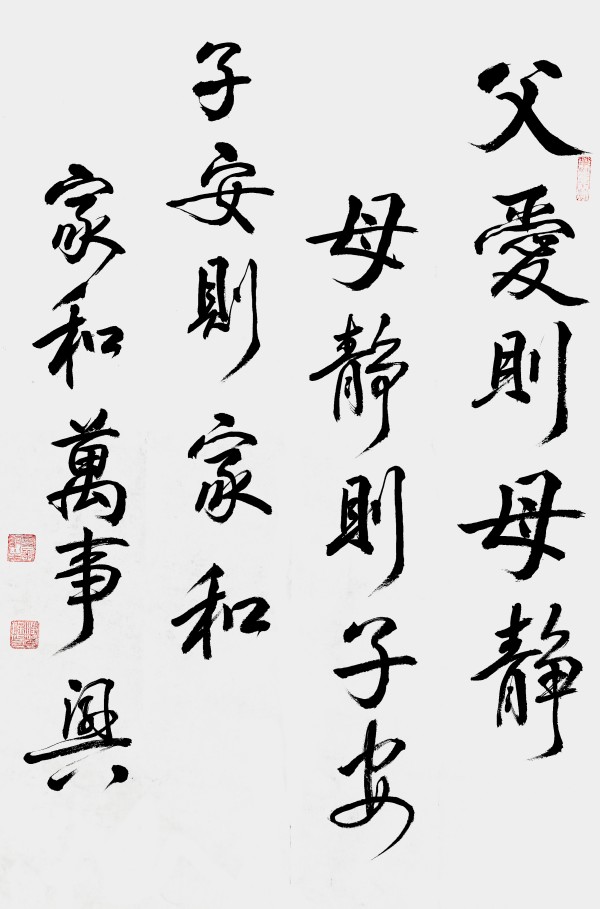 父愛則母靜
母靜則子安
子安則家和
家和萬事興